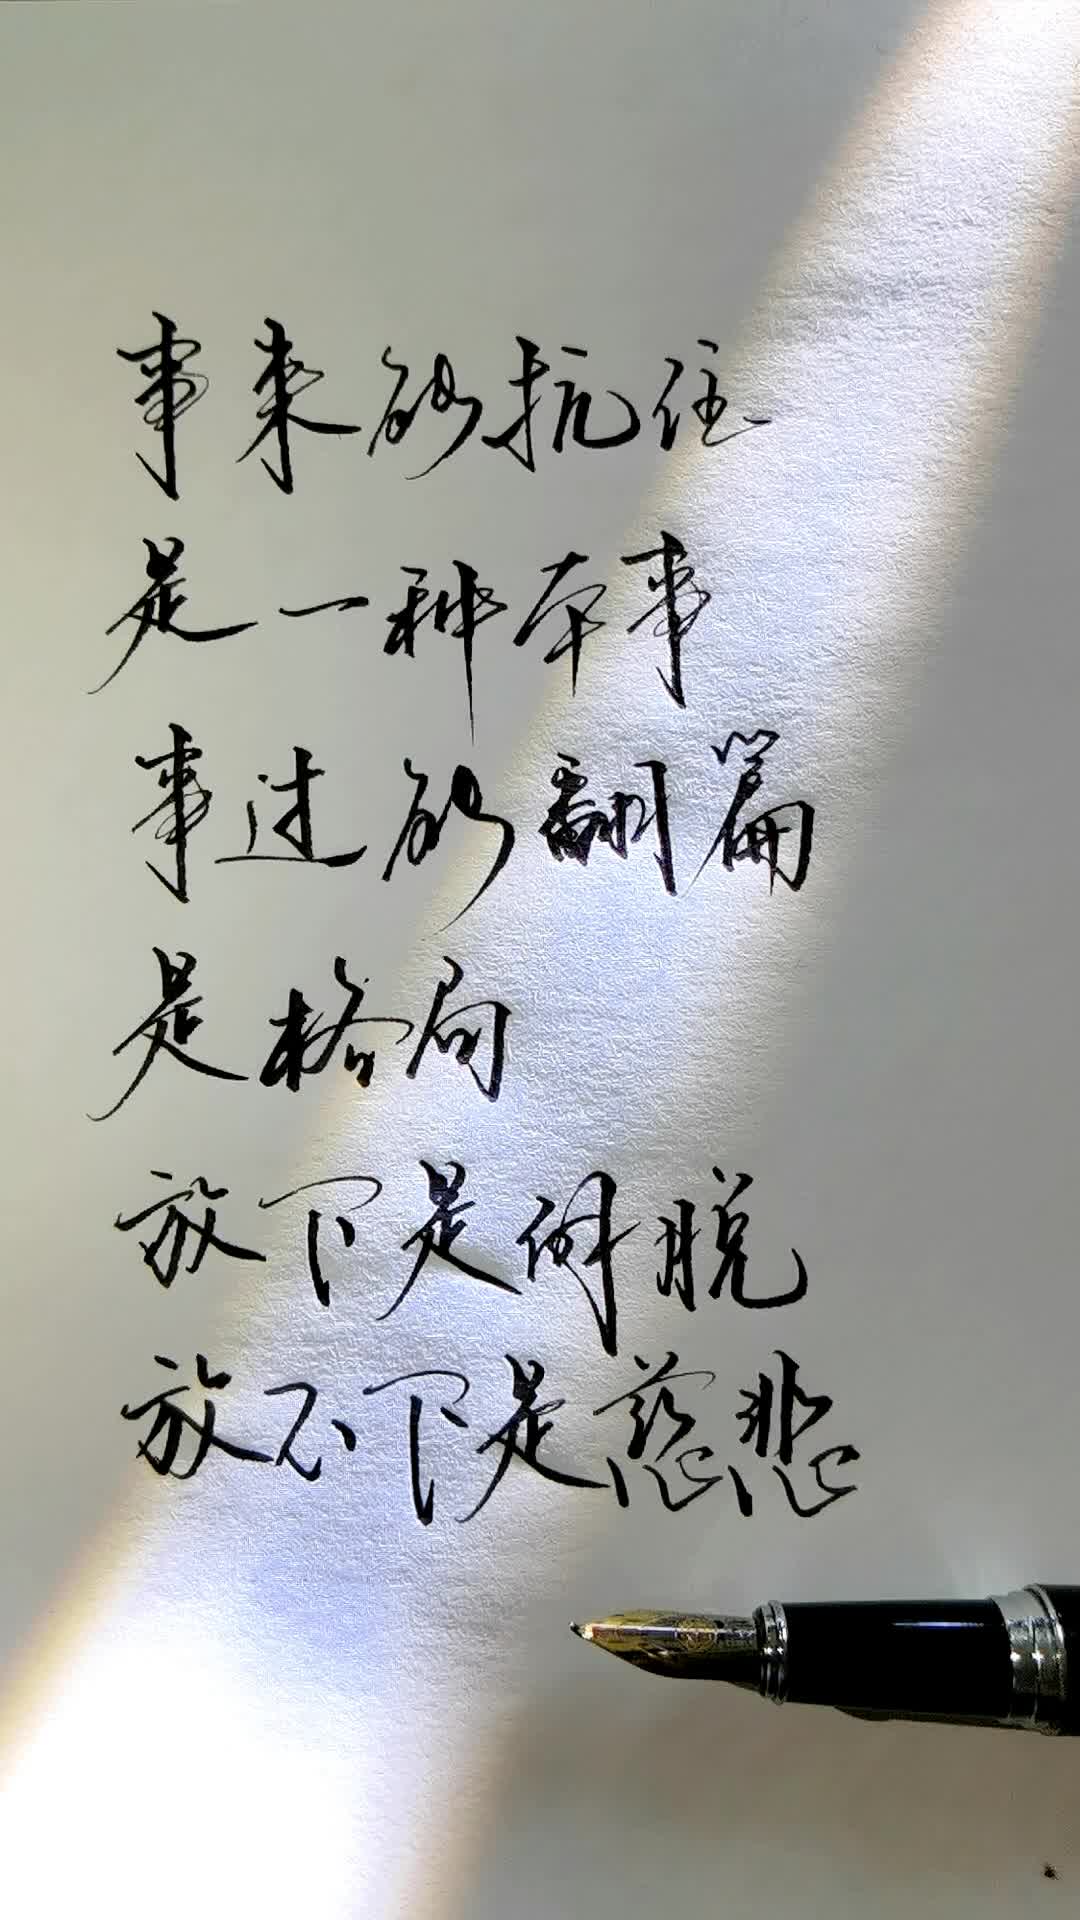 事来能抗住
是一种本事
事过能翻篇
是格局
放下是解脱
放不下是慈悲